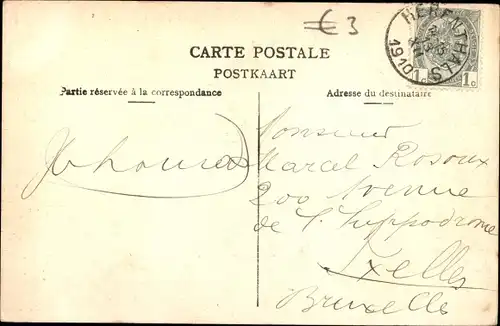 €3
HERENTHALS
1910
1c
CARTE POSTALE
POSTKAART
Partie réservée à la correspondance
Adresse du destinataire
Monsieur
Marcel Rosoux
200 Avenue
de l'hippodrome
Ixelles
Bruxelles